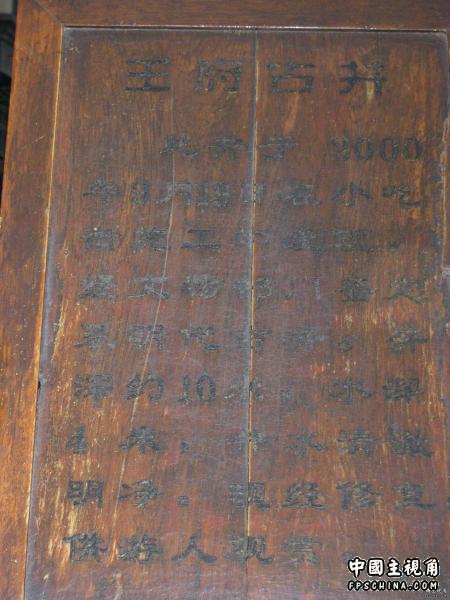 王府古井
此井于 2000
年9月19日在小吃
街施工中发现，
经文物部门鉴定
为明代古井，井
深约10米，水深
米，井水清澈
明净。现经修复，
供游人观赏。
中國主視角
FPSCHINA.COM